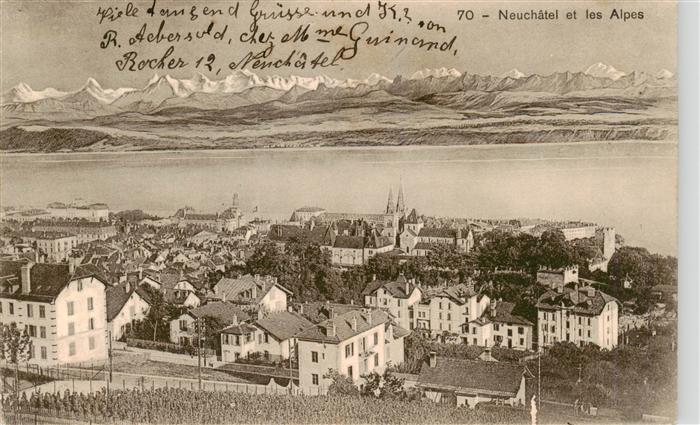 Viele tausend Grüsse und K. von
R. Aebersold, chez Mme Guinand,
Rocher 12, Neuchâtel
70 - Neuchâtel et les Alpes